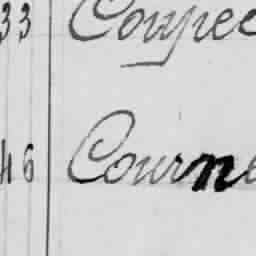 33 Coupee
46 Courne